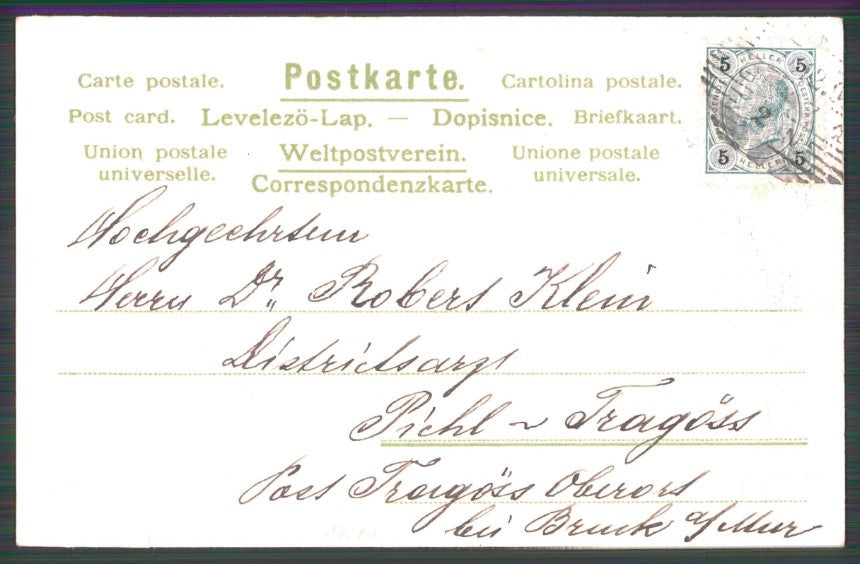 Postkarte.
Carte postale.
Cartolina postale.
Post card. Levelezö-Lap. — Dopisnice. Briefkaart.
Union postale universelle.
Weltpostverein.
Unione postale universale.
Correspondenzkarte.
5 HELLER 5
5 HELLER 5
Hochgeehrtem
Herrn Dr. Robert Klein
Districtsarzt
Pichl ~ Tragöss
Post Tragöss Oberort
bei Bruck a/Mur